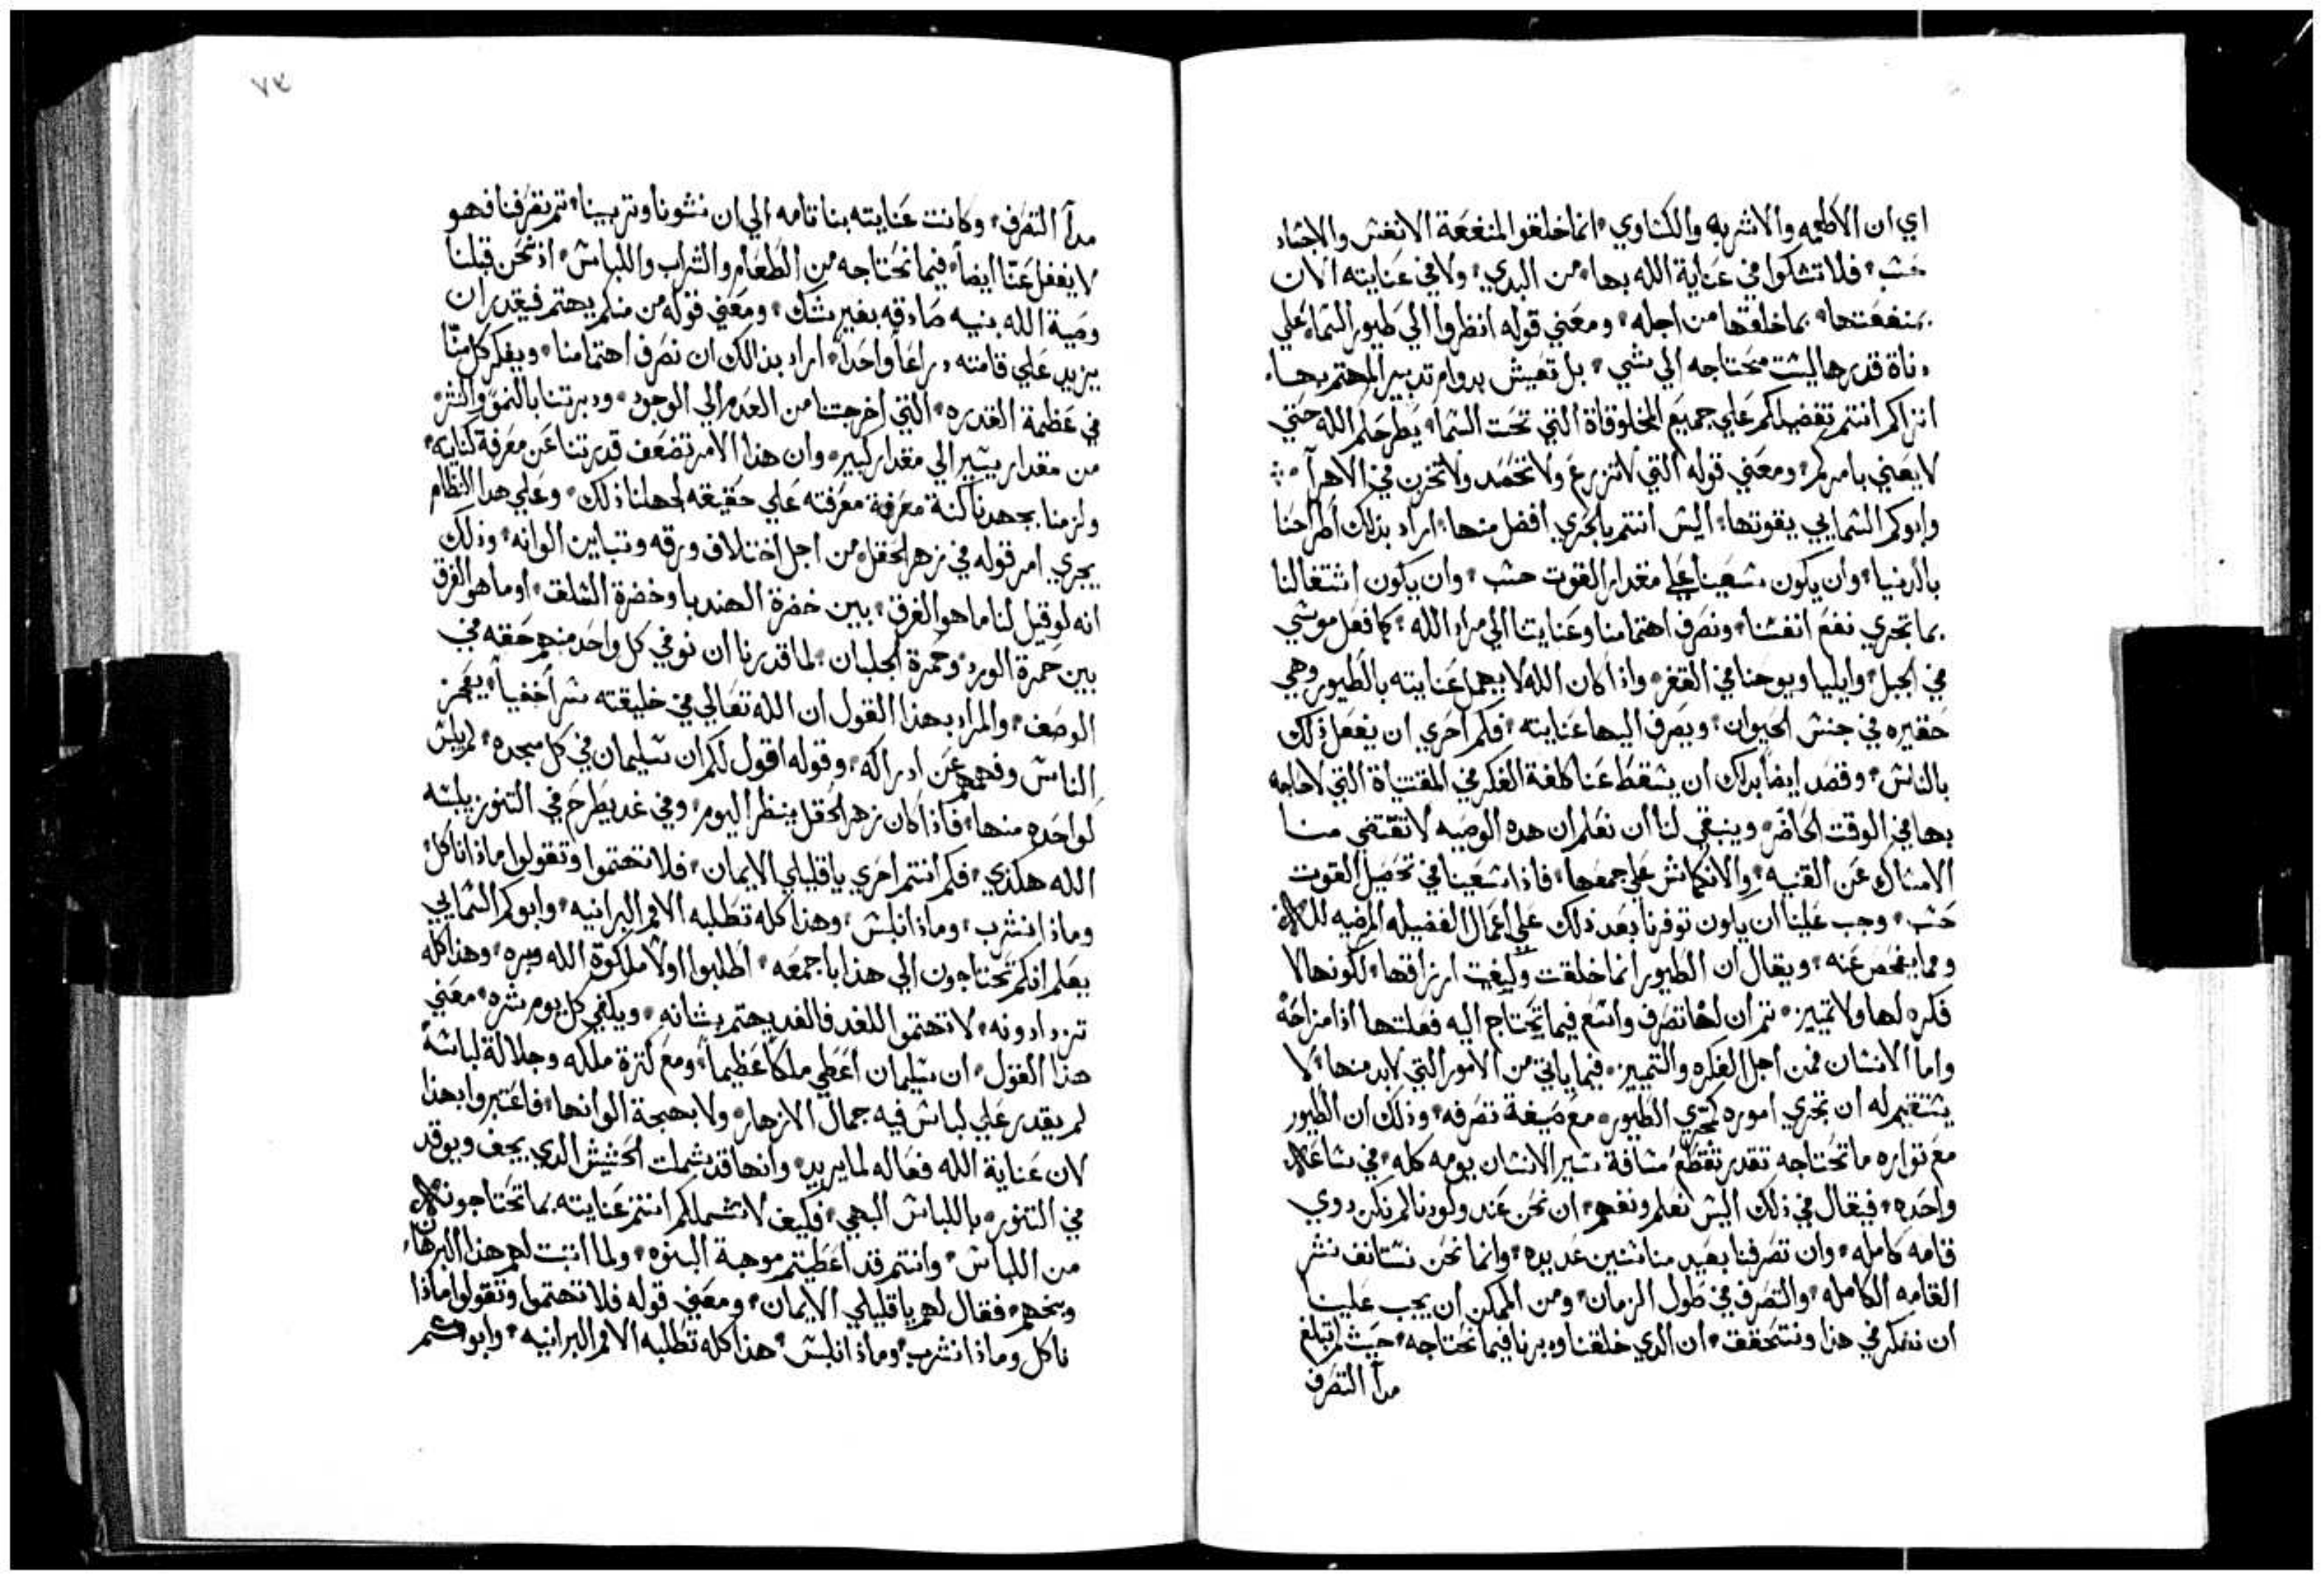 اي ان الاطعمه والاشربه والكساوي انما خلقوا لمنفعة الانفس والاجساد
حسب فلا تشكوا في عناية الله بها من البدي ولا في عنايته الان
بمنفعتها بما خلقها من اجله ومعني قوله انظروا الي طيور السماء علي
دناة قدرها ليست محتاجه الي شي بل تعيش بدوام تدبير المهتم بها
اتراكم انتم تفضيلكم علي جميع المخلوقاة التي تحت السما يطرحكم الله حتي
لا يعني بامركم ومعني قوله التي لا تزرع ولا تحصد ولا تخزن في الاهرآ
وابوكم السمايي يقوتها اليس انتم بالحري افضل منها اراد بذلك اطراحنا
بالدنيا وان يكون سعينا علي مقدار القوت حسب وان يكون اشتغالنا
بما تجري نفع انفسنا ونصرف اهتمامنا وعنايتنا الي مراد الله كما فعل موسي
في الجبل وايليا ويوحنا في القفر واذا كان الله لا يهمل عنايته بالطيور وهي
حقيره في جنس الحيوان ويصرف اليها عنايته فكم احري ان يفعل ذلك
بالناس وقصد ايضا بذلك ان يسقط عنا كلفة الفكر في المقتنياة التي لا حاجه
بها في الوقت الحاضر وينبغي لنا ان نعلم ان هده الوصيه لا تقتضي منا
الامساك عن القنيه والانكماش علي جمعها فاذا سعينا في تحصيل القوت
حسب وجب علينا ان يكون توفرنا بعد ذلك علي اعمال الفضيله المرضيه لله
ومما يفحص عنه ويقال ان الطيور انما خلقت وكيفت ارزاقها لكونها لا
فكره لها ولا تمييز ثم ان لها تصرف واسع فيما تحتاج اليه فعلتها اذا مزاحة
واما الانسان فمن اجل الفكره والتمييز فيما ياتي من الامور التي لا بد منها لا
يستقيم له ان تجري اموره كمجري الطيور مع صيغة تصرفه وذلك ان الطيور
مع تواره ما تحتاجه تقدر تقطع مسافة سير الانسان يومه كله في ساعه
واحده فيقال في ذلك اليس نعلم ونفهم ان نحن عند وكودنا لم نكن دوي
قامه كامله وان تصرفنا بعيد منا سنين عديده وانما نحن نستانف نشر
القامه الكامله والتصرف في طول الزمان ومن الممكن ان يجب علينا
ان نفكر في هذا ونتحقق ان الدي خلقنا ودبرنا فيما نحتاجه حيث لم تبلغ
مدآ التصرف
٧٣
مدآ التصرف وكانت عنايته بنا تامه الي ان نشونا وتربينا ثم تصرفنا فهو
لا يغفل عنا ايضاً فيما نحتاجه من الطعام والشراب واللباس اذ نحن قبلنا
وصية الله بنيه صادقه بغير شك ومعني قوله من منكم يهتم فيقدر ان
يزيد علي قامته دراعاً واحداً اراد بذالك ان نصرف اهتمامنا ويفكر كل منا
في عظمة القدره التي اخرجتنا من العدم الي الوجود ودبرتنا بالنمو والنشر
من مقدار يسير الي مقدار كبير وان هذا الامر تضعف قدرتنا عن معرفة كنايته
ولزمنا بجهدنا كنة معرفة معرفته علي حقيقه لجهلنا ذلك وعلي هدا النظام
يجري امر قوله في زهر الحقل من اجل اختلاف ورقه وتباين الوانه وذلك
انه لو قيل لنا ما هو الفرق بين خضرة الهندبا وخضرة السلق او ما هو الفرق
بين حمرة الورد وحمرة الجلبان لما قدرنا ان نوفي كل واحد منهم حقه في
الوصف والمراد بهذا القول ان الله تعالي في خليقته سراً خفياً يعجز
الناس وفهمهم عن ادراكه وقوله اقول لكم ان سليمان في كل مجده لم يلبس
كواحده منها فاذا كان زهر الحقل ينظر اليوم وفي غد يطرح في التنور يلبسه
الله هكذي فكم انتم احري يا قليلي الايمان فلا تهتموا وتقولوا ماذا ناكل
وماذا نشرب وماذا نلبس وهذا كله تطلبه الامم البرانيه وابوكم السمايي
يعلم انكم تحتاجون الي هذا باجمعه اطلبوا اولاً ملكوة الله وبره وهذا كله
تزدادونه لا تهتموا للغد فالغد يهتم بشانه ويكفي كل يوم شره معني
هذا القول ان سليمان اعطي ملكاً عظيماً ومع كثرة ملكه وجلالة لباسه
لم يقدر علي لباس فيه جمال الازهار ولا بهجة الوانها فاعتبروا بهذا
لان عناية الله فعاله لما يريد وانها قد شملت الحشيش الدي يجف ويوقد
في التنور باللباس البهي فكيف لا تشملكم انتم عنايته بما تحتاجونه
من اللباس وانتم قد اعطيتم موجبة البنوه ولما اثبت لهم هذا البرهان
وبخهم فقال لهم يا قليلي الايمان ومعني قوله فلا تهتموا وتقولوا ماذا
ناكل وماذا نشرب وماذا نلبس هذا كله تطلبه الامم البرانيه وابوكم